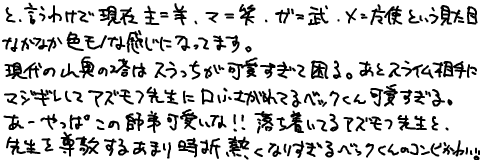 と、言うわけで現在 主＝羊、マ＝笑、ガ＝武、メ＝天使という見た目
なかなか色モノな感じになってます。
現代の山奥の塔は スラっちが可愛すぎて困る。あとスライム相手に
マジギレしてアズモフ先生に口ふさがれてるベックくん可愛すぎる。
あーやっぱこの師弟可愛いな!! 落ち着いてるアズモフ先生と、
先生を尊敬するあまり時折熱くなりすぎるベックくんのコンビかわいい。